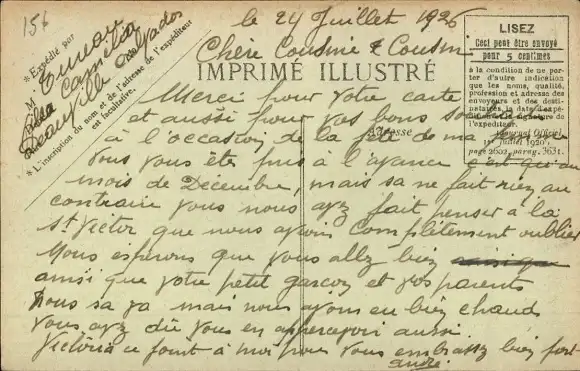 156
* Expédié par
M
Camélia
Deauville
* L'inscription du nom et de l'adresse de l'expéditeur
est facultative.
le 24 Juillet 1926
Chère Cousine & Cousin
IMPRIMÉ ILLUSTRÉ
Adresse
LISEZ
Ceci peut être envoyé
pour 5 centimes
à la condition de ne por-
ter d'autre indication
que les noms, qualité,
profession et adresse des
envoyeurs et des desti-
nataires, la date d'expé-
dition et la signature de
l'expéditeur.
Journal Officiel
11 Juillet 1920
page 2602, paragr. 3631.
Merci pour votre carte
et aussi pour vos bons
à l'occasion de la fête de ma
Vous vous ête pris à l'avance c'est qu'au
mois de Decembre, mais sa ne fait rien au
contraire vous nous avez fait penser à la
St Victor que nous avions Complètement oublier
Nous espérons que vous allez bien
ainsi que votre petit garçon et vos parents
Nous sa va mais nous avons eu bien chaud
Vous avez dû vous en appercevoir aussi.
Victoria ce joint à moi pour vous embrassez bien fort
André.